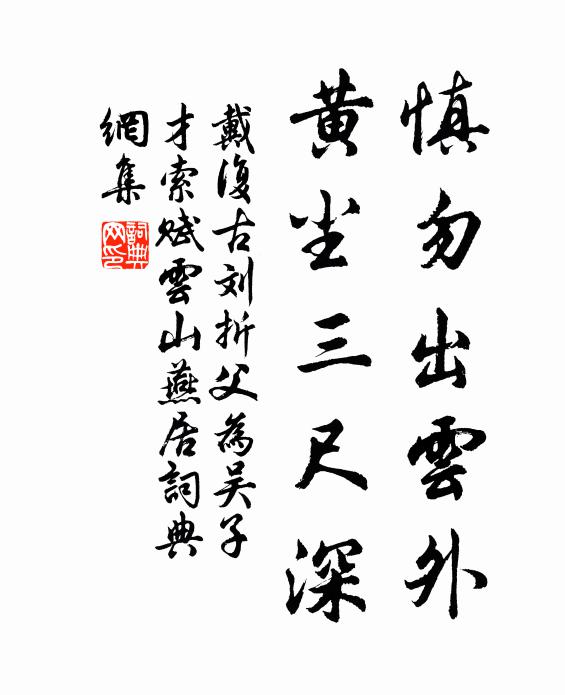 慎勿出雲外
黄尘三尺深
戴復古刘折父為吴子
才索赋雲山燕居詞典
網集
詞典
网印